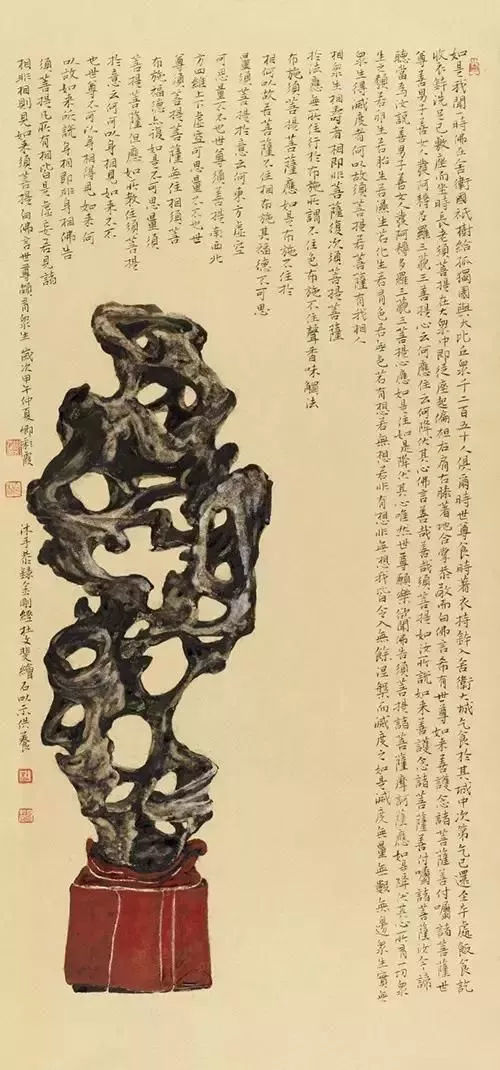 如是我聞一時佛在舍衛國祇樹給孤獨園與大比丘衆千二百五十人俱爾時世尊食時著衣持鉢入舍衛大城乞食於其城中次第乞已還至本處飯食訖
收衣鉢洗足已敷座而坐時長老須菩提在大衆中即從座起偏袒右肩右膝著地合掌恭敬而白佛言希有世尊如来善護念諸菩薩善付囑諸菩薩世
尊善男子善女人發阿耨多羅三藐三菩提心云何應住云何降伏其心佛言善哉善哉須菩提如汝所說如来善護念諸菩薩善付囑諸菩薩汝今諦
聽當為汝說善男子善女人發阿耨多羅三藐三菩提心應如是住如是降伏其心唯然世尊願樂欲聞佛告須菩提諸菩薩摩訶薩應如是降伏其心所有一切衆
生之類若卵生若胎生若濕生若化生若有色若無色若有想若無想若非有想非無想我皆令入無餘涅槃而滅度之如是滅度無量無數無邊衆生實無
衆生得滅度者何以故須菩提若菩薩有我相人
相衆生相壽者相即非菩薩復次須菩提菩薩
於法應無所住行於布施所謂不住色布施不住聲香味觸法
布施須菩提菩薩應如是布施不住於
相何以故若菩薩不住相布施其福德不可思
量須菩提於意云何東方虛空
可思量不不也世尊須菩提南西北
方四維上下虛空可思量不不也世
尊須菩提菩薩無住相須菩
布施福德亦復如是不可思量須
菩提菩薩但應如所教住須菩提
於意云何可以身相見如来不不
也世尊不可以身相得見如来何
以故如来所說身相即非身相佛告
須菩提凡所有相皆是虛妄若見諸
相非相則見如来須菩提白佛言世尊頗有衆生 歲次甲午仲夏
沐手恭錄金剛經杜文斐繪石以示供養